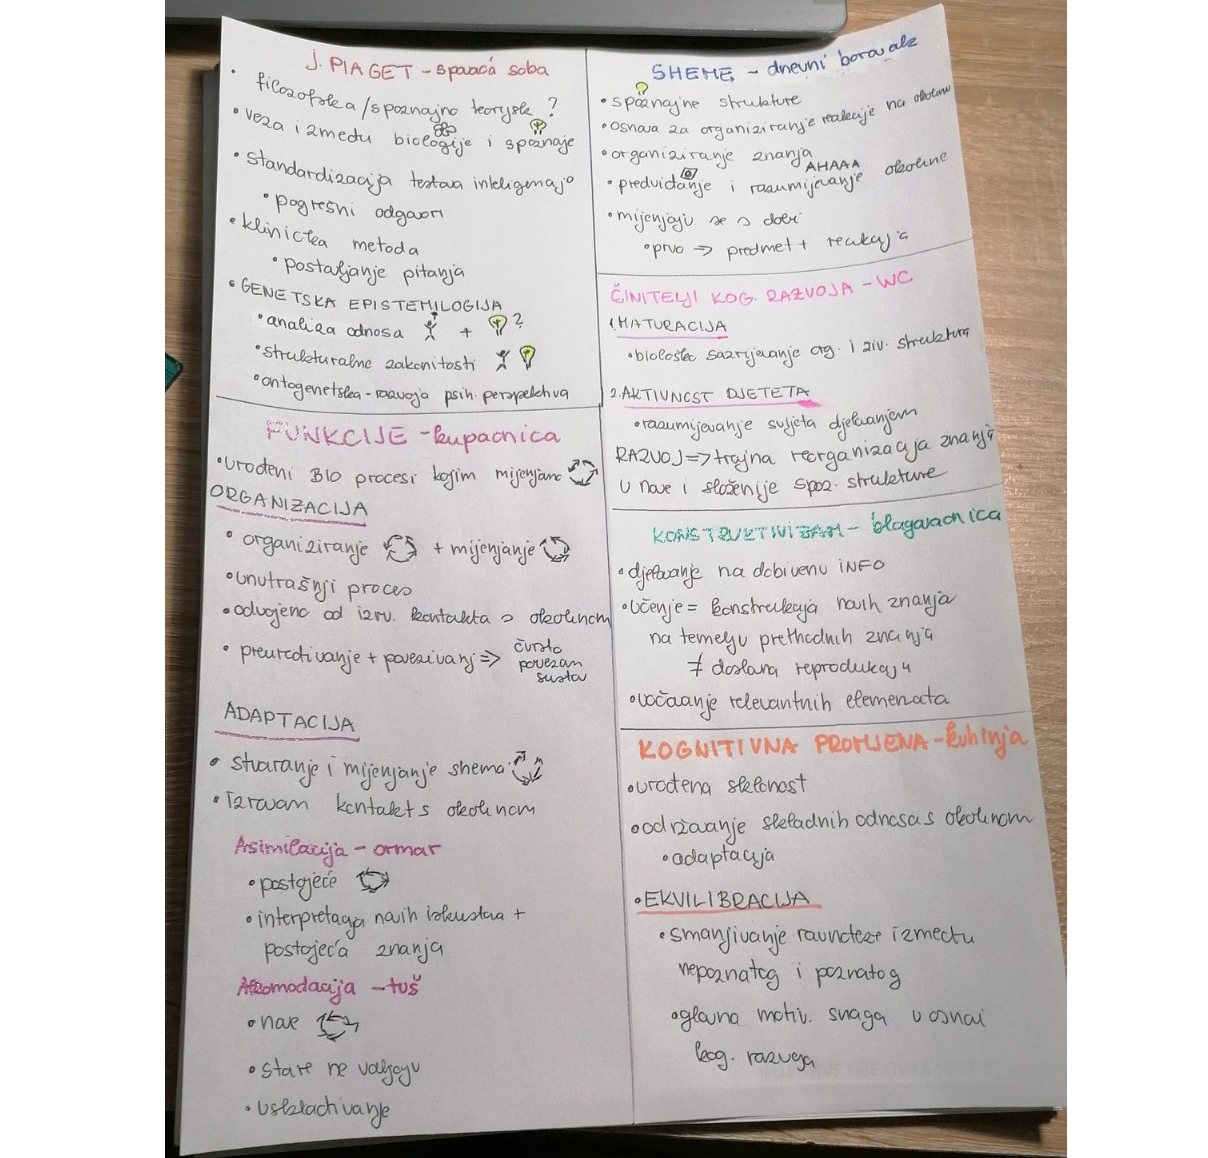 J. PIAGET - spavaća soba
• filozofska/spoznajno teorijske ?
• veza između biologije i spoznaje
• standardizacija testova inteligencije
• pogrešni odgovori
• klinička metoda
• postavljanje pitanja
• GENETSKA EPISTEMILOGIJA
• analiza odnosa + ?
• strukturalne zakonitosti
• ontogenetska - razvoja psih. perspektiva
FUNKCIJE - kupaonica
• urođeni BIO procesi kojim mijenjamo
ORGANIZACIJA
• organiziranje + mijenjanje
• unutrašnji proces
• odvojeno od izrav. kontakta s okolinom
• preuređivanje + povezivanj => čvrsto
povezan
sustav
ADAPTACIJA
• stvaranje i mijenjanje shema
• izravan kontakt s okolinom
Asimilacija - ormar
• postojeće
• interpretacija novih iskustva +
postojeća znanja
Akomodacija - tuš
• nove
• stare ne valjaju
• usklađivanje
SHEME - dnevni boravak
• spoznajne strukture
• osnova za organiziranje reakcije na okolinu
• organiziranje znanja
AHAAA
• predviđanje i razumijevanje okoline
• mijenjaju se s dobi
• prvo => predmet + reakcija
ČINITELJI KOG. RAZVOJA - WC
1. MATURACIJA
• biološko sazrijevanje org. i živ. struktura
2. AKTIVNOST DJETETA
• razumijevanje svijeta djelovanjem
RAZVOJ => trajna reorganizacija znanja
u nove i složenije spoz. strukture
KONSTRUKTIVIZAM - blagovaonica
• djelovanje na dobivenu INFO
• učenje = konstrukcija novih znanja
na temelju prethodnih znanja
≠ doslovna reprodukcija
• uočavanje relevantnih elemenata
KOGNITIVNA PROMJENA - kuhinja
• urođena sklonost
• održavanje skladnih odnosa s okolinom
• adaptacija
• EKVILIBRACIJA
• smanjivanje ravnoteže između
nepoznatog i poznatog
• glavna motiv. snaga u osnovi
kog. razvoja